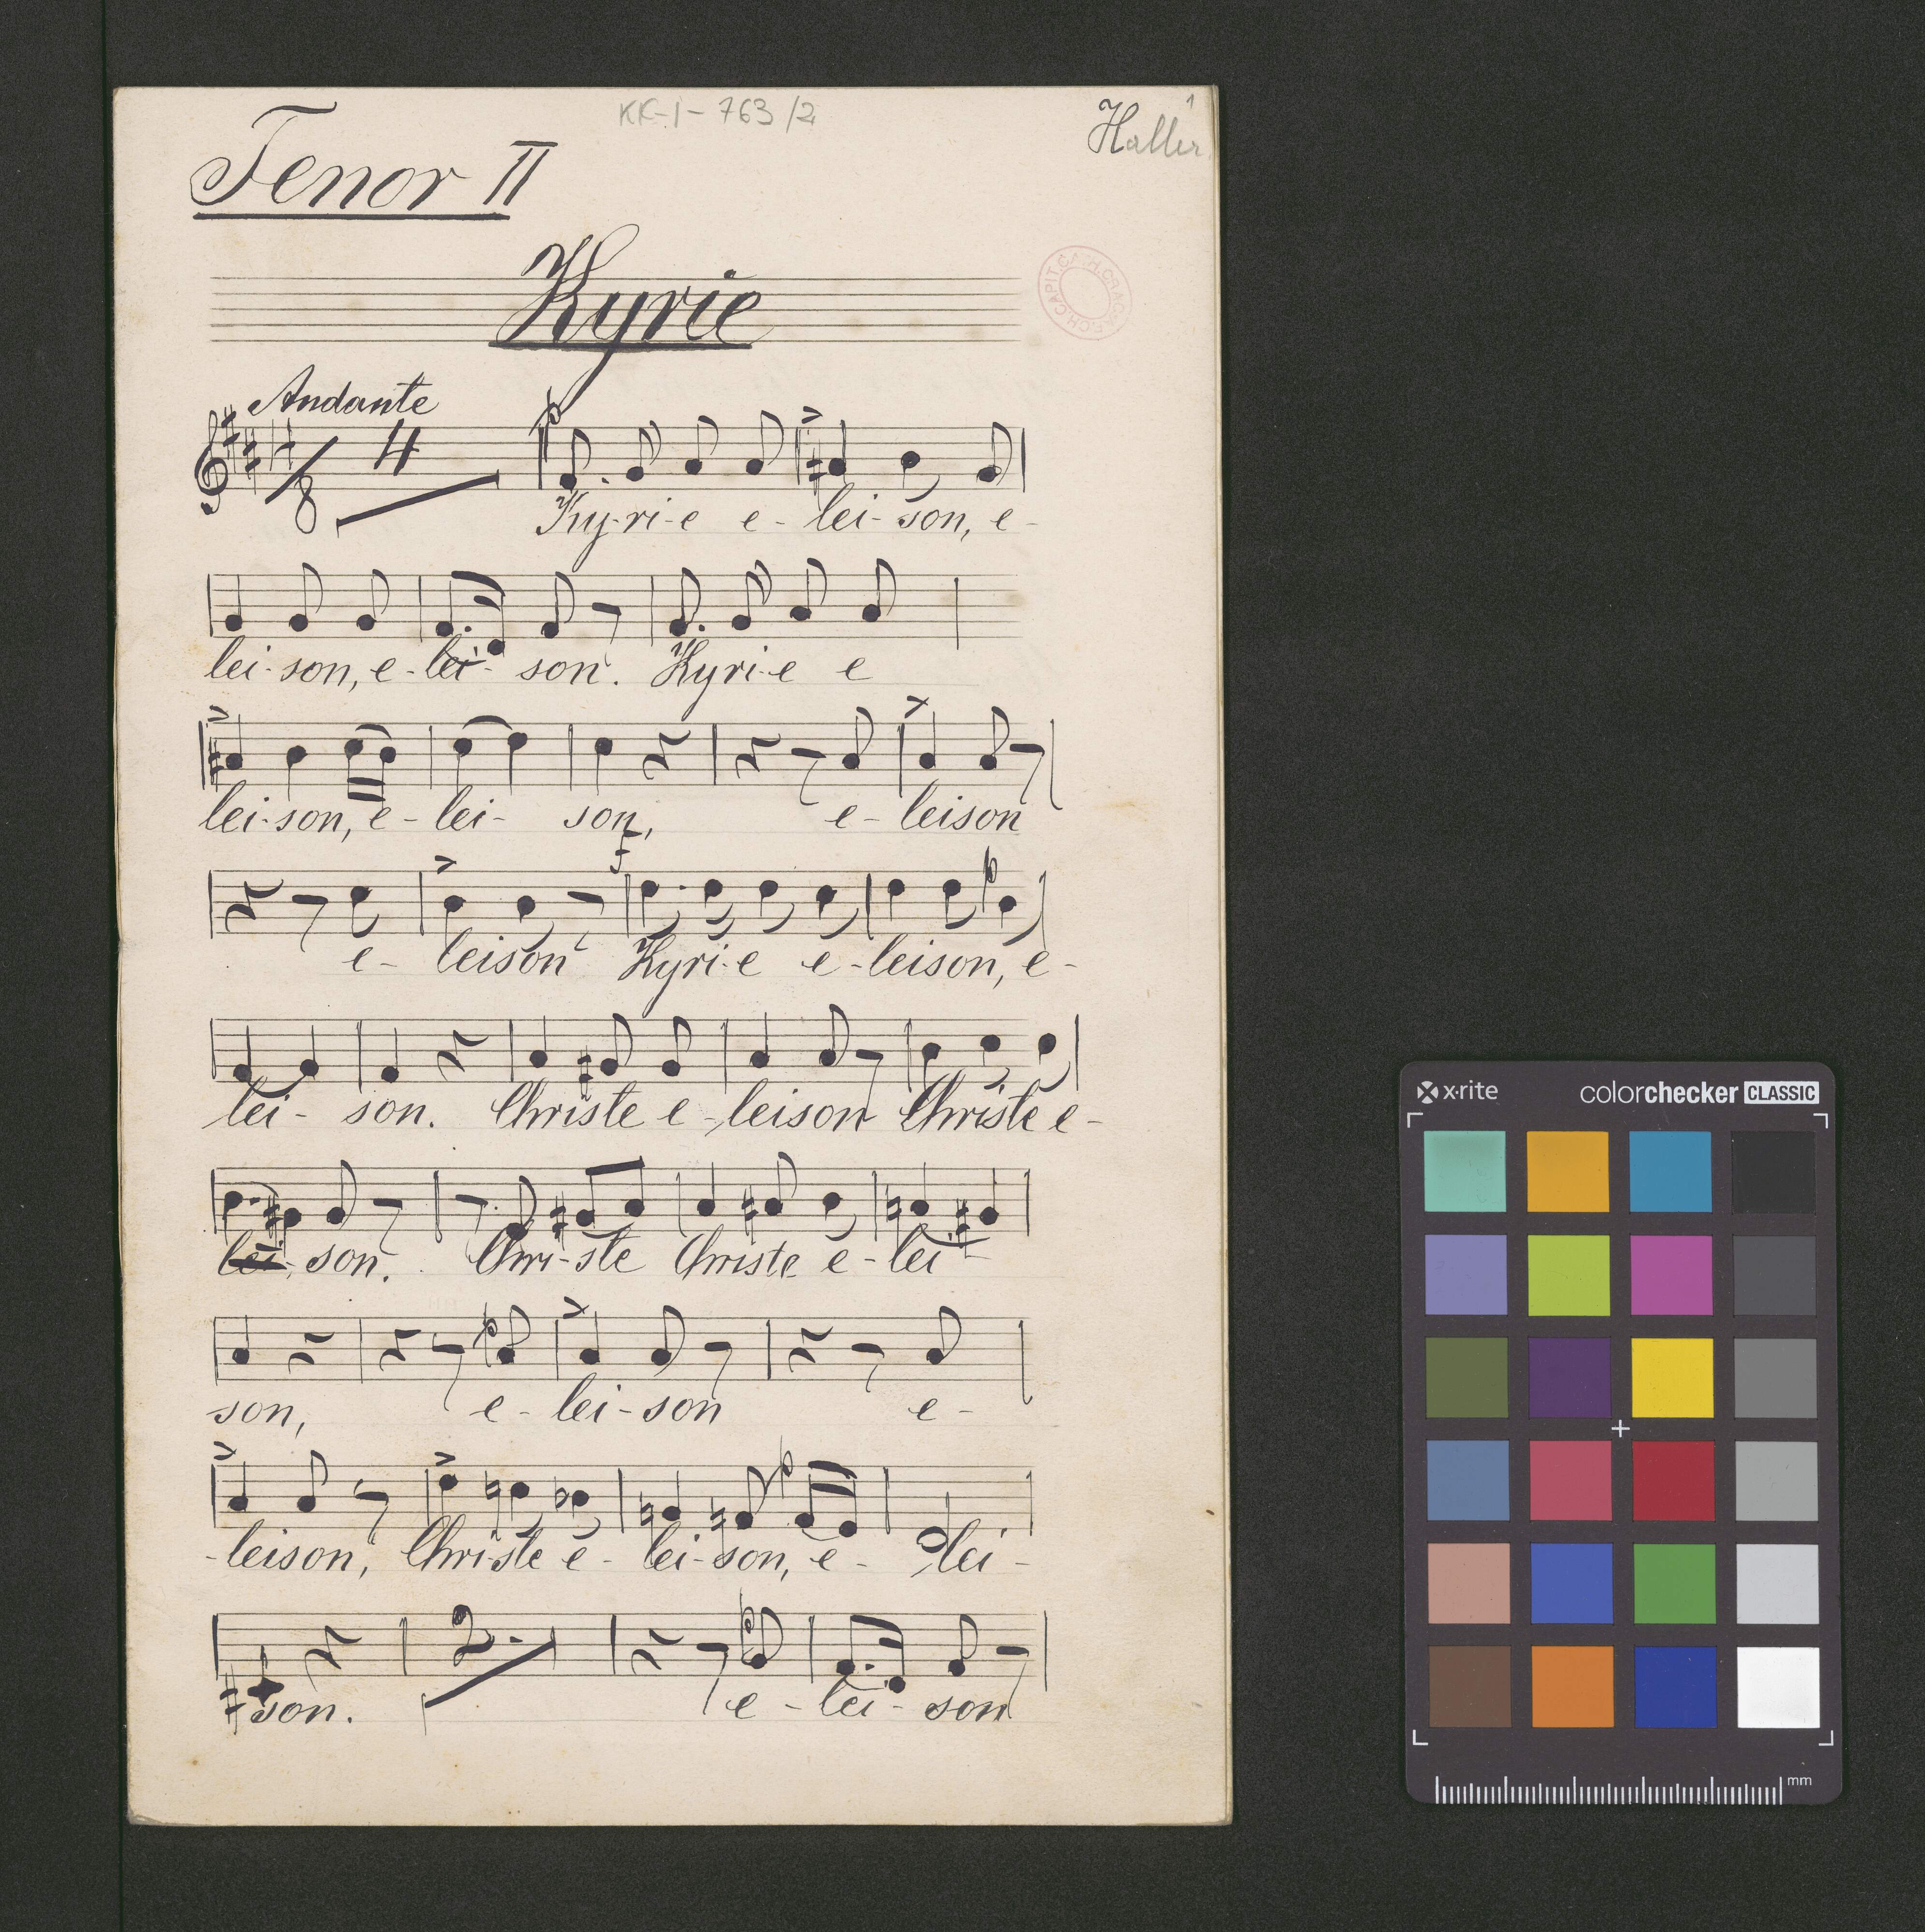 KK-I-763/2
1
Haller
Tenor II
Kyrie
Andante
4
8
4
p
Ky-ri-e e-lei-son, e-
lei-son, e-lei-son. Kyri-e e
lei-son, e-lei-son, e-leison
f
p
e-leison Kyri-e e-leison, e-
lei-son. Christe e-leison Christe e-
lei-son. Chri-ste Christe e-lei
p
son, e-lei-son e-
p
-leison, Christe e-lei-son, e-lei-
2.
p
son. e-lei-son
x-rite colorchecker CLASSIC
mm